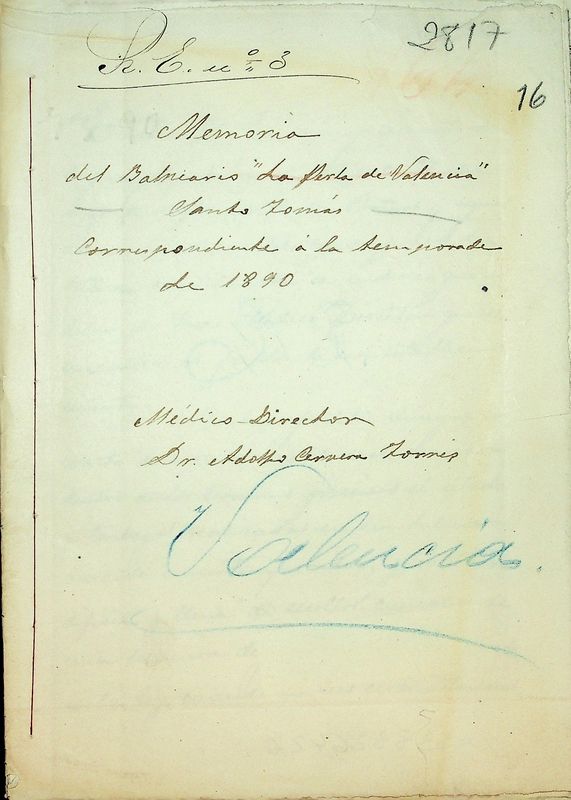 2817
R. E. nº 3
16
Memoria
del Balneario "La Perla de Valencia"
Santo Tomás
Correspondiente á la temporada
de 1890
Médico-Director
Dr. Adolfo Cervera Torres
Valencia.